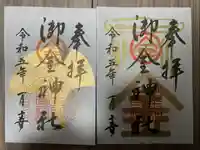 奉拝
御金神社
令和五年 月 吉
奉拝
御金神社
令和五年 月 吉